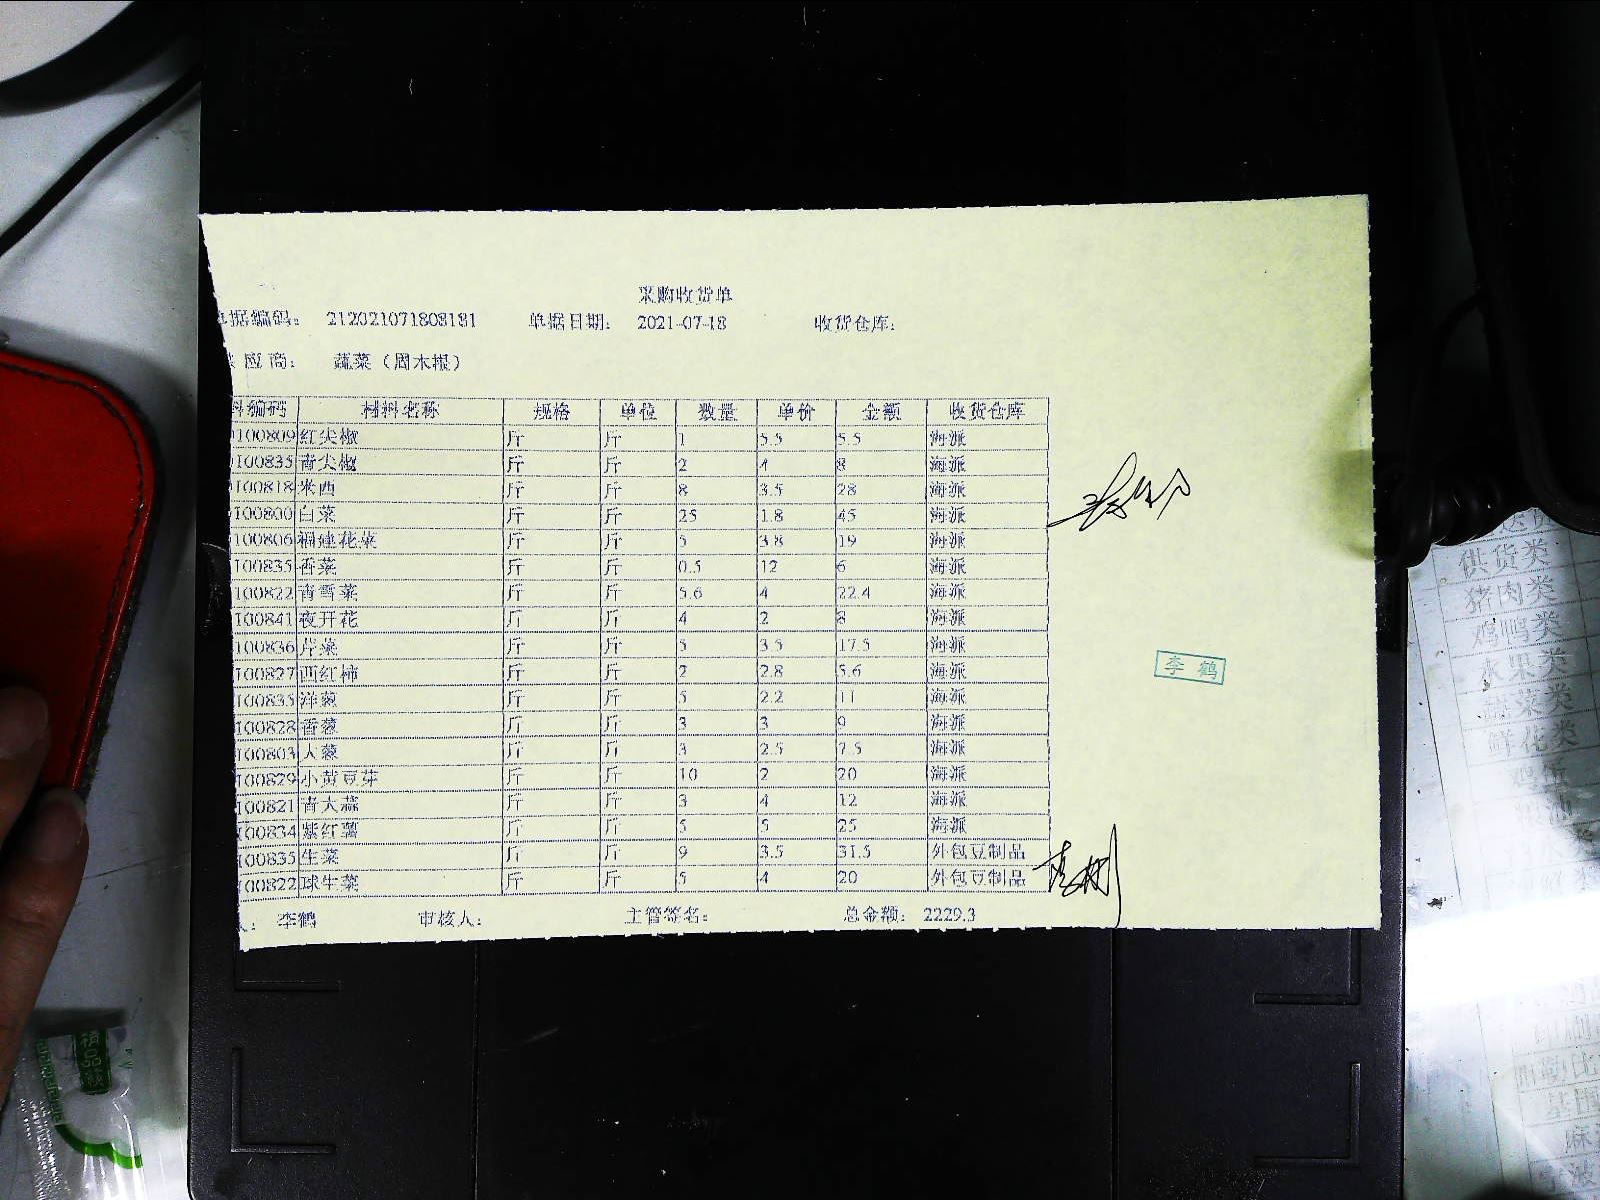 采购收货单
单据编码： 212021071808181 单据日期： 2021-07-18 收货仓库：
应商： 蔬菜（周木根）
料编码 材料名称 规格 单位 数量 单价 金额 收货仓库
100809 红尖椒 斤 斤 1 5.5 5.5 海派
100835 青尖椒 斤 斤 2 4 8 海派
100818 米西 斤 斤 8 3.5 28 海派
100800 白菜 斤 斤 25 1.8 45 海派
100806 福建花菜 斤 斤 5 3.8 19 海派
100835 香菜 斤 斤 0.5 12 6 海派
100822 青雪菜 斤 斤 5.6 4 22.4 海派
100841 夜开花 斤 斤 4 2 8 海派
100836 芹菜 斤 斤 5 3.5 17.5 海派
100827 西红柿 斤 斤 2 2.8 5.6 海派
100835 洋葱 斤 斤 5 2.2 11 海派
100828 香葱 斤 斤 3 3 9 海派
100803 大葱 斤 斤 3 2.5 7.5 海派
100829 小黄豆芽 斤 斤 10 2 20 海派
100821 青大蒜 斤 斤 3 4 12 海派
100834 紫红薯 斤 斤 5 5 25 海派
100835 生菜 斤 斤 9 3.5 31.5 外包豆制品
100822 球生菜 斤 斤 5 4 20 外包豆制品
人： 李鹤 审核人： 主管签名： 总金额： 2229.3
李鹤
供货类
猪肉类
鸡鸭类
水果类
蔬菜类
鲜花类